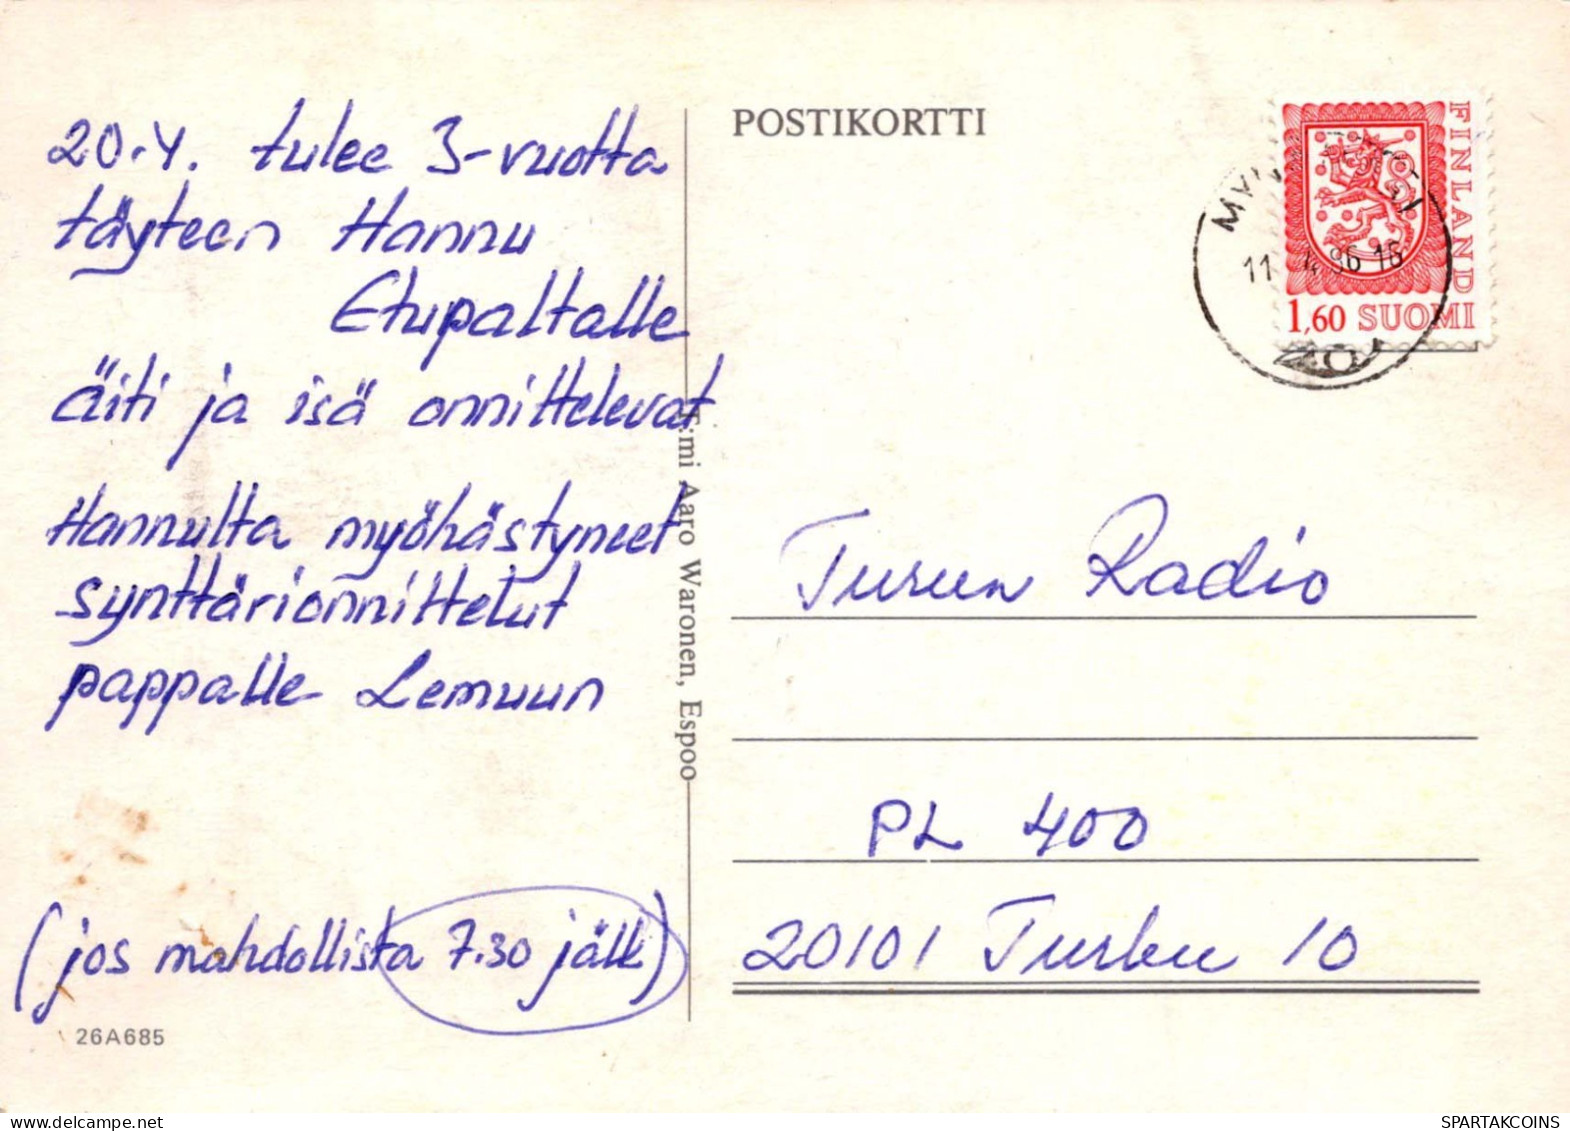 20.4. tulee 3-vuotta
täyteen Hannu
Etupaltalle
äiti ja isä onnittelevat
Hannulta myöhästyneet
synttärionnittelut
pappalle Lemuun
(jos mahdollista 7.30 jälk)
26A685
T:mi Aaro Waronen, Espoo
POSTIKORTTI
FINLAND
1,60 SUOMI
11 4 86 16
Turun Radio
PL 400
20101 Turku 10
SPARTAKCOINS